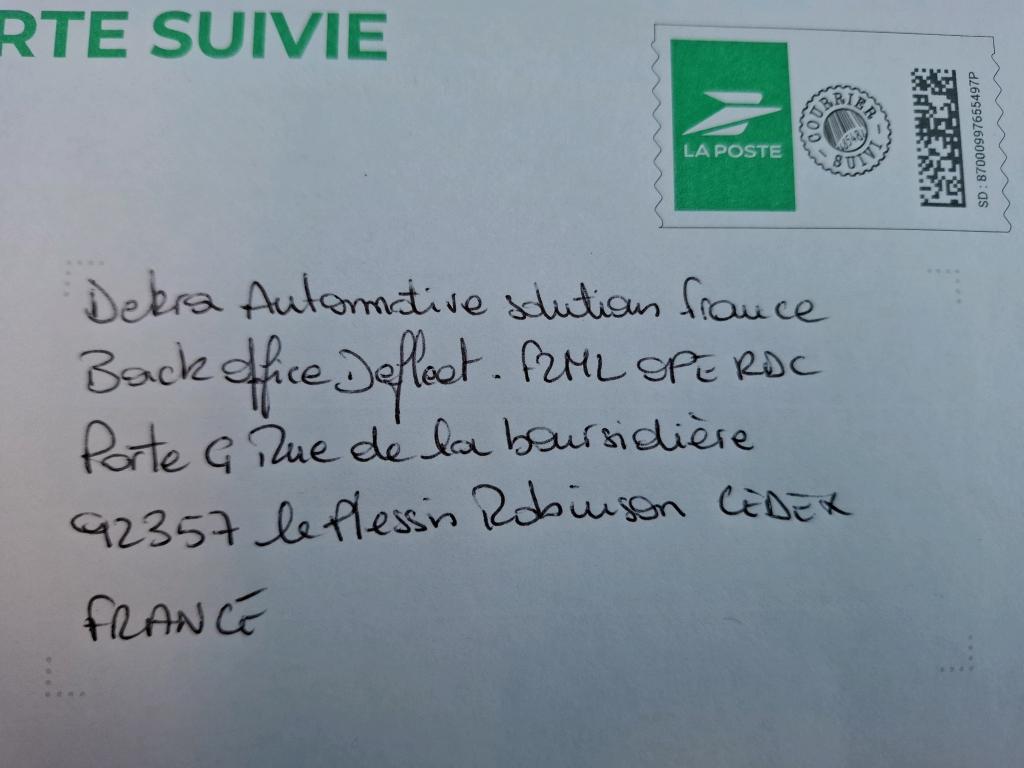 RTE SUIVIE
LA POSTE
COURRIER SUIVI
SD : 87000997655497P
Dekra Automotive solution france
Back office Defleet. F2ML OPE RDC
Porte G Rue de la boursidière
92357 le Plessis Robinson CEDEX
FRANCE